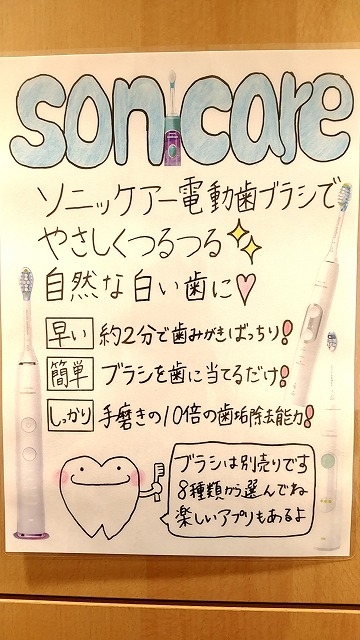 sonicare
ソニッケアー電動歯ブラシで
やさしくつるつる✨
自然な白い歯に♡
早い 約2分で歯みがきばっちり!
簡単 ブラシを歯に当てるだけ!
しっかり 手磨きの10倍の歯垢除去能力!
ブラシは別売りです
8種類から選んでね
楽しいアプリもあるよ